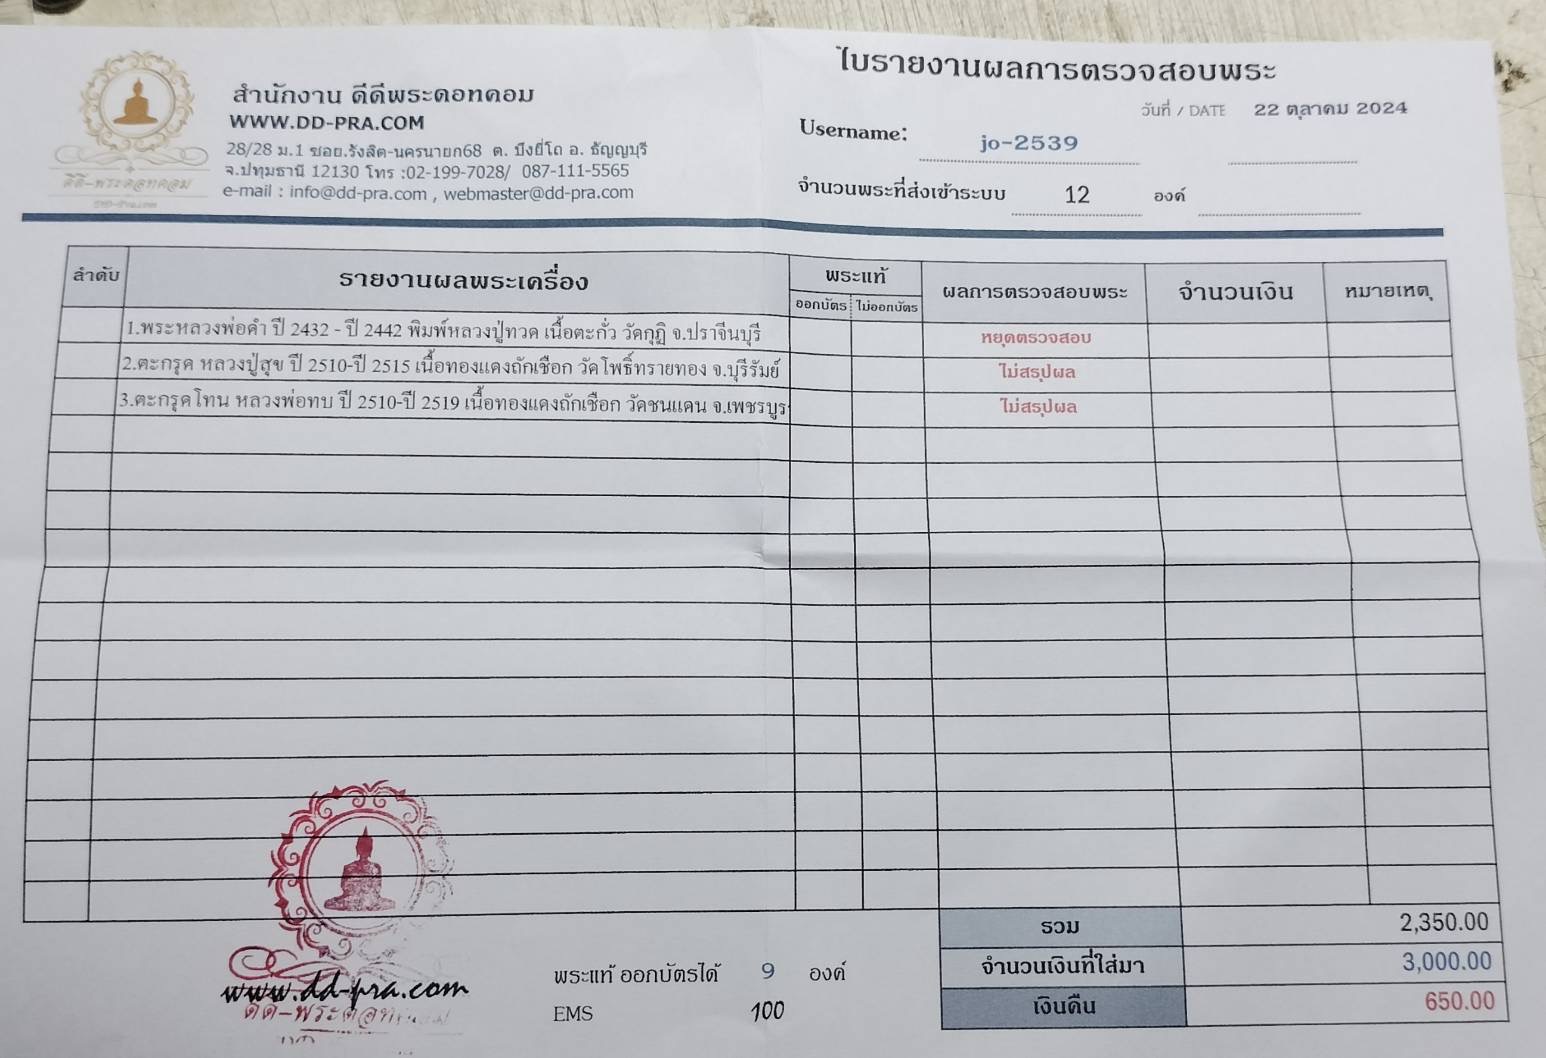 ใบรายงานผลการตรวจสอบพระ
สำนักงาน ดีดีพระดอทคอม
WWW.DD-PRA.COM
28/28 ม.1 ซอย.รังสิต-นครนายก68 ต. บึงยี่โถ อ. ธัญญบุรี
จ.ปทุมธานี 12130 โทร :02-199-7028/ 087-111-5565
e-mail : info@dd-pra.com , webmaster@dd-pra.com
ดีดี-พระดอทคอม
DD-Pra.com
วันที่ / DATE 22 ตุลาคม 2024
Username: jo-2539
จำนวนพระที่ส่งเข้าระบบ 12 องค์
ลำดับ รายงานผลพระเครื่อง พระแท้ ผลการตรวจสอบพระ จำนวนเงิน หมายเหตุ
ออกบัตร ไม่ออกบัตร
1.พระหลวงพ่อดำ ปี 2432 - ปี 2442 พิมพ์หลวงปู่ทวด เนื้อตะกั่ว วัดกุฏิ จ.ปราจีนบุรี หยุดตรวจสอบ
2.ตะกรุด หลวงปู่สุข ปี 2510-ปี 2515 เนื้อทองแดงถักเชือก วัดโพธิ์ทรายทอง จ.บุรีรัมย์ ไม่สรุปผล
3.ตะกรุดโทน หลวงพ่อทบ ปี 2510-ปี 2519 เนื้อทองแดงถักเชือก วัดชนแดน จ.เพชรบูร ไม่สรุปผล
รวม 2,350.00
จำนวนเงินที่ใส่มา 3,000.00
เงินคืน 650.00
พระแท้ ออกบัตรได้ 9 องค์
EMS 100
www.dd-pra.com
ดีดี-พระดอท